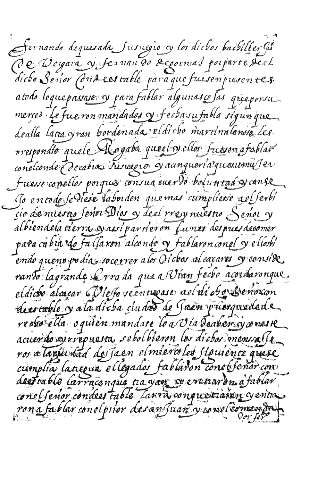 fernando de quesada su suegro y los dichos bachiller
de Vergara y fernando de gormaz por parte del
dicho Señor Condestable para que fuesen presentes
a todo lo que pasase y para fablar algunas cosas que por su
merced le fueron mandados y fecha su fabla segun que
de alla la trayan hordenada el dicho
rrespondio que le Rogaba que el y ellos fuesen a fablar
con el conde De cabra su suegro y
fuese con ellos porque con su acuerdo boluntad y conse
Jo en todo se diese la horden que mas cumpliese al serbi
cio de nuestro Señor Dios y del rrey nuestro Señor y
al bien de la tierra y asi partieron lunes despues de comer
para cabra do fallaron al conde y fablaron con el y el
endo que no podia socorrer a los Dichos alcaçares y conside
rando la grande que avian fecho acordaron que
el dicho alcaçar Viejo se entregase al dicho Señor con
destable y a la dicha ciudad de Jaen
rrecebo ella o quien mandase lo avia de aber y con este
acuerdo y rrespuesta se bolbieron los dichos mensaJe
ros a la ciudad de Jaen el miercoles siguiente que se
cumplia la tregua e llegados fablaron con el Señor con
destable la rraçon que trayan y entraron a fablar
con el Señor condestable la rraçon que trayan y entra
ron a fablar con el prior de san Juan y con el comendador